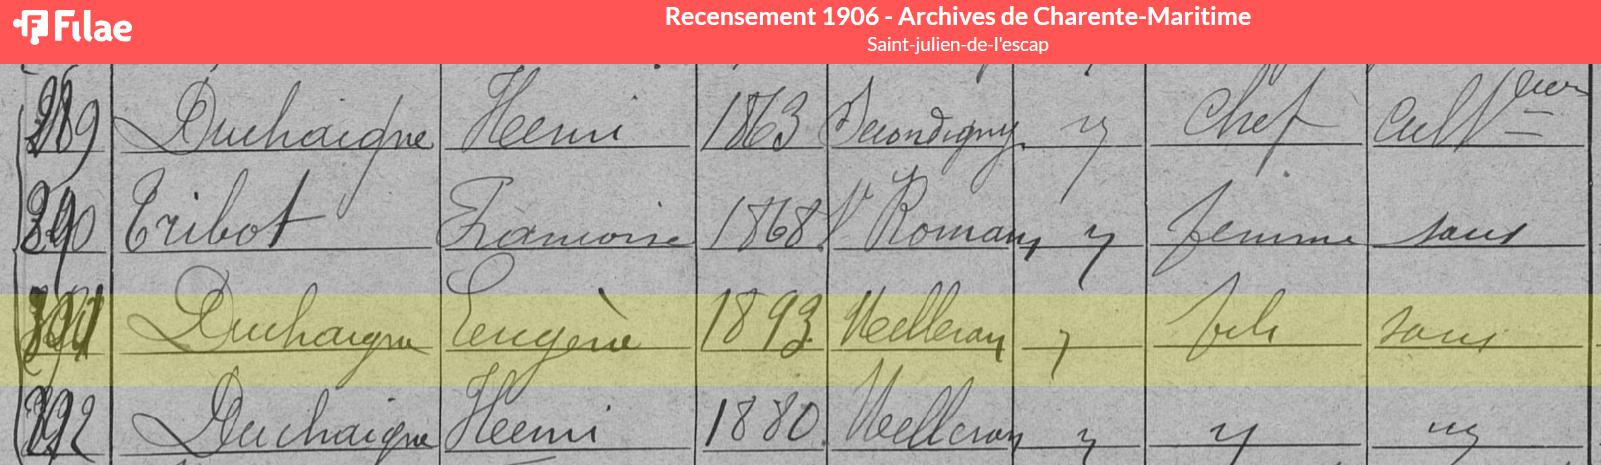 Filae
Recensement 1906 - Archives de Charente-Maritime
Saint-julien-de-l'escap
389 Duchaigne Henri 1863 Secondigny y Chef Cultiv=eur
390 Tribot Françoise 1868 St Romans y femme sans
391 Duchaigne Eugène 1893 Melleran y fils sans
392 Duchaigne Henri 1880 Melleran y y y